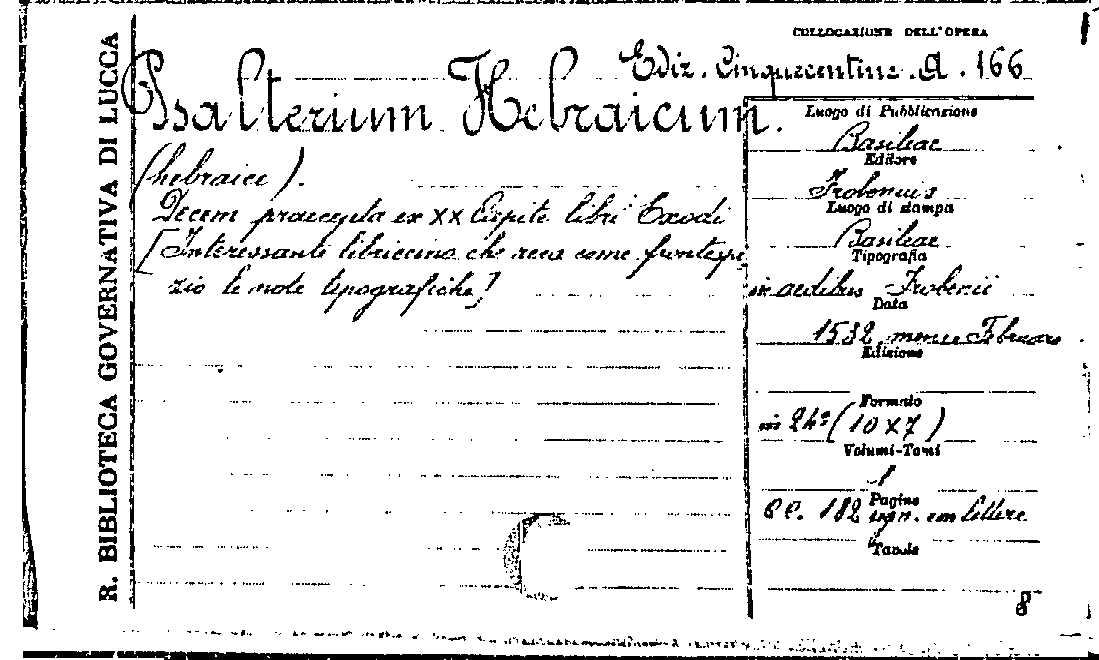 R. BIBLIOTECA GOVERNATIVA DI LUCCA
COLLOCAZIONE DELL'OPERA
Ediz. Cinquecentine. A. 166
Psalterium Hebraicum.
(hebraice).
Decem praecepta ex XX Capite libri Exodi
[Interessanti libriccino che reca come frontespi
zio le note tipografiche]
Luogo di Pubblicazione
Basileae
Editore
Frobenius
Luogo di stampa
Basileae
Tipografia
in aedibus Frobenii
Data
1532 mense Februaro
Edizione
Formato
in 24° (10 x 7)
Volumi-Tomi
1
Pagine
cc. 182 segn. con lettere
Tavole
8